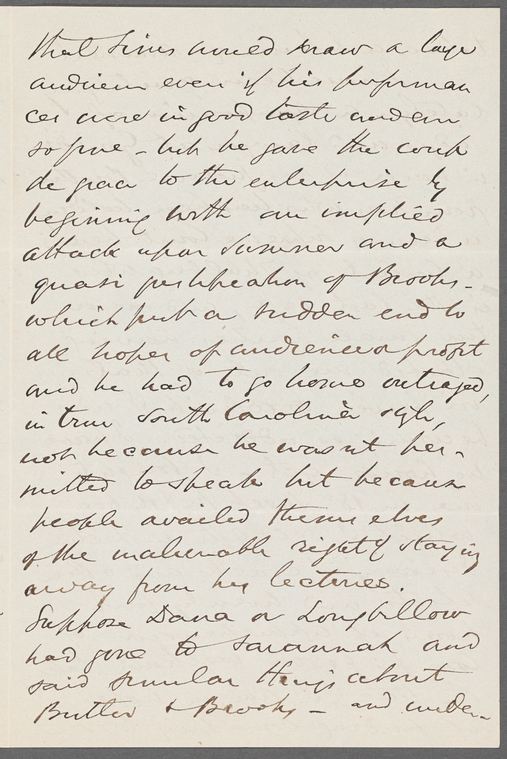 that Sims would draw a large
audience even if his performan
ces were in good taste and ever
so fine - but he gave the coup
de grace to the enterprise by
beginning with an implied
attack upon Sumner and a
quasi justification of Brooks -
which put a sudden end to
all hopes of audience or profit
and he had to go home outraged,
in true South Carolina style,
not because he wasnt per-
mitted to speak but because
people availed themselves
of the inalienable right of staying
away from his lectures.
Suppose Dana or Longfellow
had gone to Savannah and
said similar things about
Butler & Brooks - and under-